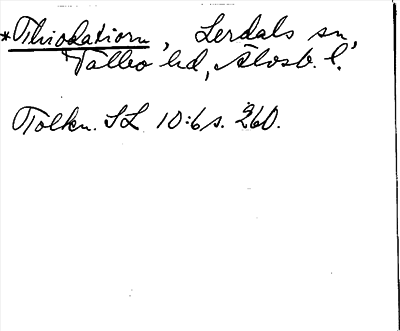 *Thiodatiorn, Lerdals sn,
Valbo hd, Älvsb. l.
Tolkn. SL 10:6 s. 260.